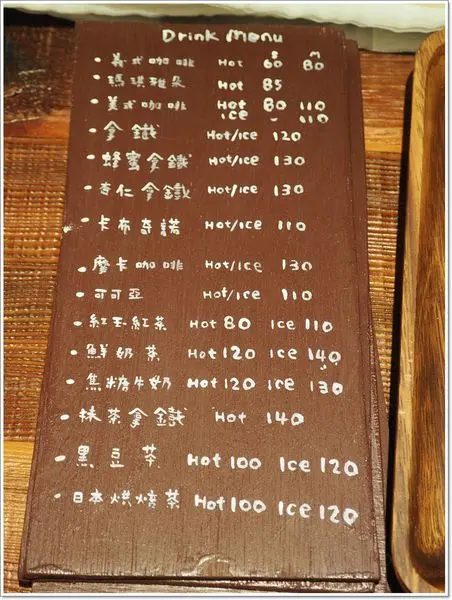 Drink Menu
S M
• 義式咖啡 Hot 60 80
• 瑪琪雅朵 Hot 85
• 美式咖啡 Hot 80 110
ice 110
• 拿鐵 Hot/Ice 120
• 蜂蜜拿鐵 Hot/Ice 130
• 杏仁拿鐵 Hot/Ice 130
• 卡布奇諾 Hot/Ice 110
• 摩卡咖啡 Hot/Ice 130
• 可可亞 Hot/Ice 110
• 紅玉紅茶 Hot 80 Ice 110
• 鮮奶茶 Hot 120 Ice 140
• 焦糖牛奶 Hot 120 Ice 130
• 抹茶拿鐵 Hot 140
• 黑豆茶 Hot 100 Ice 120
• 日本烘焙茶 Hot 100 Ice 120